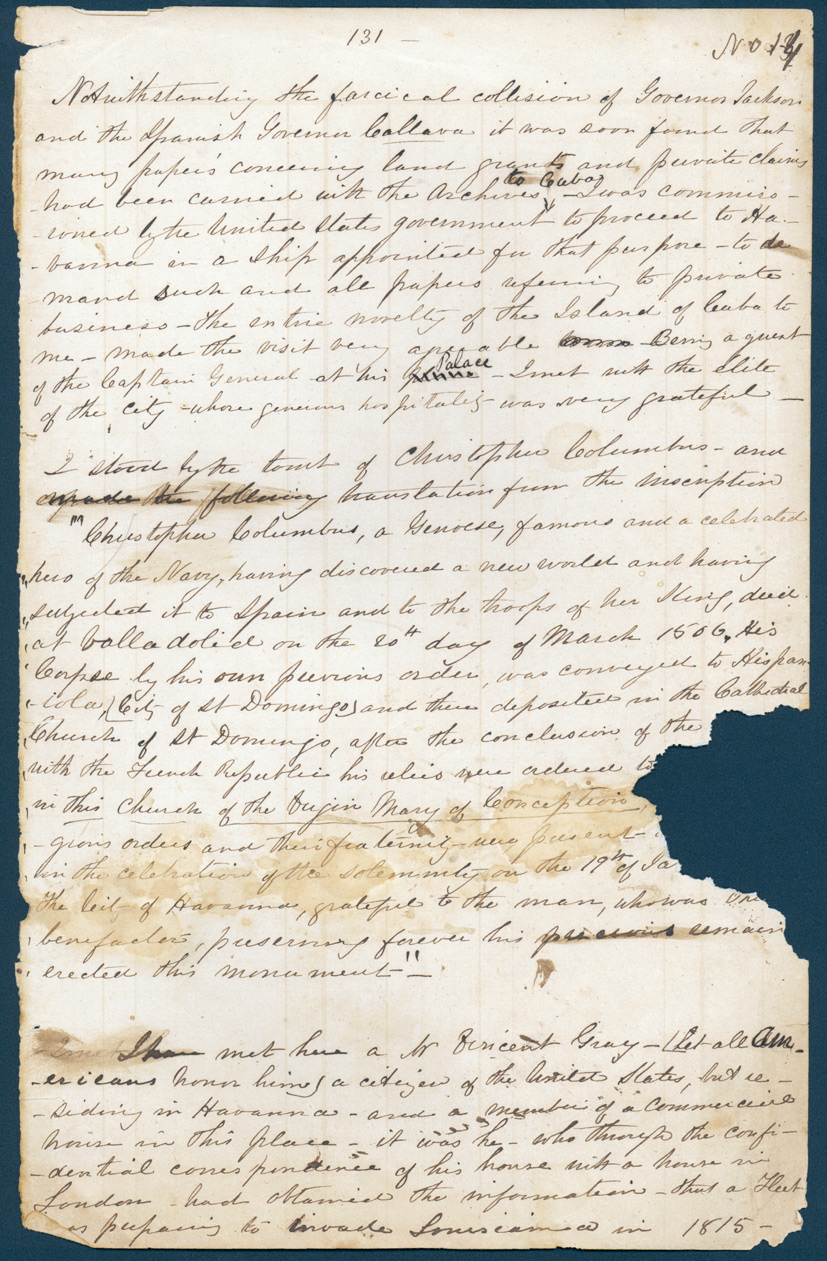 131 —
No 14
Notwithstanding the farcical collision of Governor Jackson
and the Spanish Governor Callava it was soon found that
many papers concerning land grants and private claims
to Cuba
had been carried with the Archives — I was commis-
-sioned by the United States government to proceed to Ha-
-vanna in a Ship appointed for that purpose — to de
mand such and all papers referring to private
business — The entire novelty of the Island of Cuba to
me — made the visit very agreeable — Being a guest
Palace
of the Captain General at his — I met with the Elite
of the city whose generous hospitality was very grateful —
I stood by the tomb of Christopher Columbus — and
made the following translation from the inscription
"Christopher Columbus, a Genoese, famous and a celebrated
hero of the Navy, having discovered a new world and having
subjected it to Spain and to the troops of her King, died
at Valladolid on the 20th day of March 1506. His
Corpse by his own previous order, was conveyed to Hispan
-iola, (City of St Domingo) and there deposited in the Cathedral
Church of St Domingo, after the conclusion of the
with the French Republic his relics were ordered to
in this Church of the Virgin Mary of Conception,
-gious orders and their fraternity were present
in the celebration of the solemnity on the 19th of Ja
The City of Havanna, grateful to the man, who was
benefactor, preserving forever his precious remain
erected this monument" —
I have met here a Mr Vincent Gray — (Let all Am-
-ericans honor him) a citizen of the United States, but re-
-siding in Havanna — and a member of a Commercial
house in this place — it was he — who through the confi-
-dential correspondence of his house with a house in
London had obtained the information — that a Fleet
as preparing to invade Louisiana in 1815 —